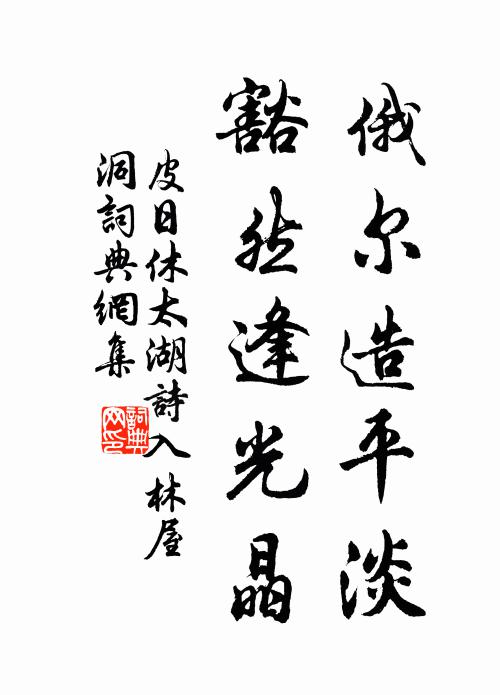 俄尔造平淡
豁然逢光晶
皮日休太湖詩入林屋
洞詞典網集
詞典
网印